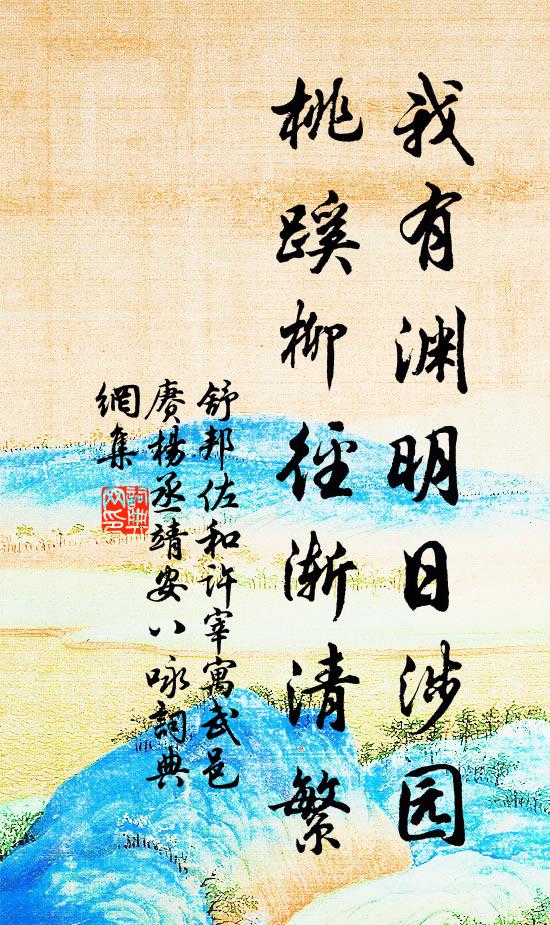 我有渊明日涉园
桃蹊柳径渐清繁
舒邦佐和许宰寓武邑
赓杨丞靖安八咏詞典
網集
詞典
网印